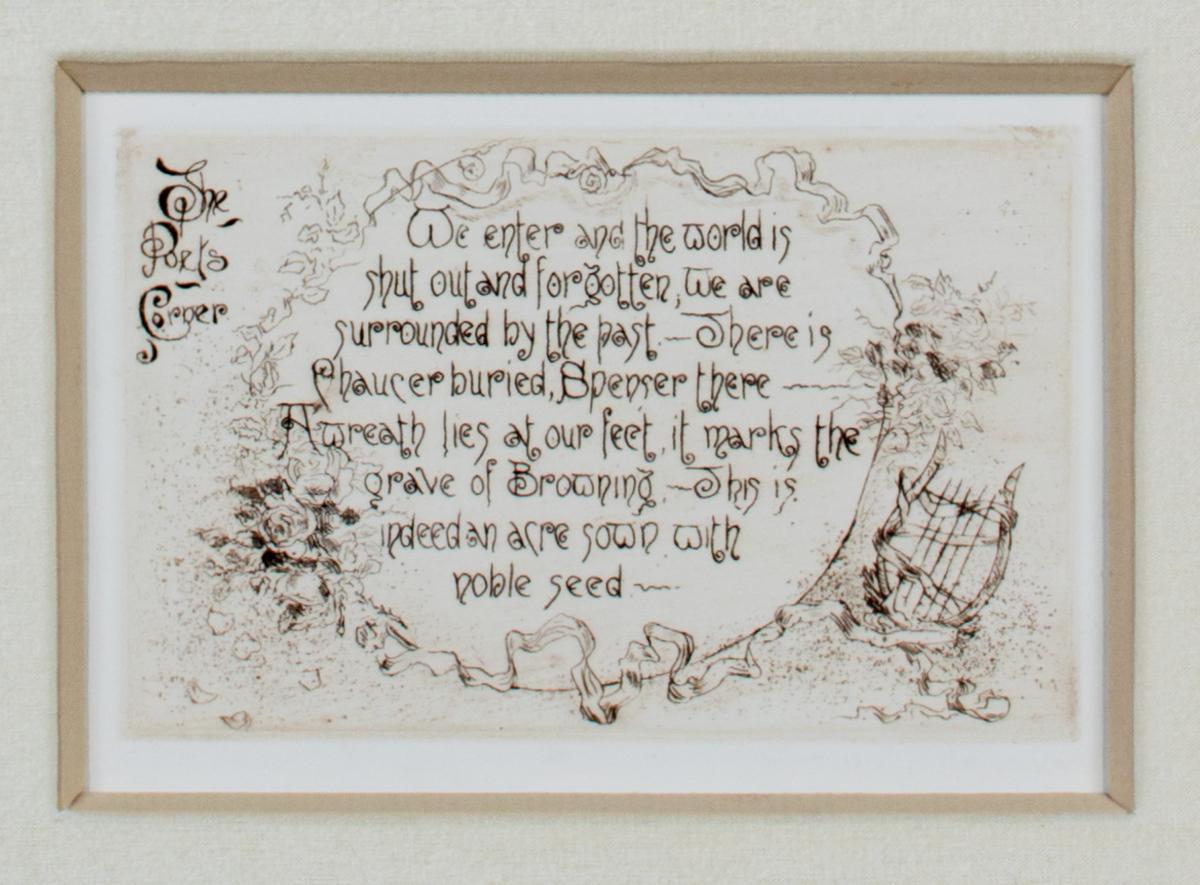 The
Poets
Corner
We enter and the world is
shut out and forgotten, we are
surrounded by the past. — There is
Chaucer buried, Spenser there —
A wreath lies at our feet, it marks the
grave of Browning. — This is
indeed an acre sown with
noble seed —